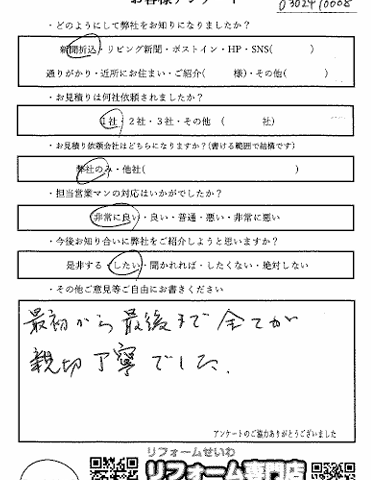 お客様アンケート
0302410008
・どのようにして弊社をお知りになりましたか?
新聞折込・リビング新聞・ポストイン・HP・SNS( )
通りがかり・近所にお住まい・ご紹介( 様)・その他( )
・お見積りは何社依頼されましたか?
1社・2社・3社・その他 ( 社)
・お見積り依頼会社はどちらになりますか?(書ける範囲で結構です)
弊社のみ・他社( )
・担当営業マンの対応はいかがでしたか?
非常に良い・良い・普通・悪い・非常に悪い
・今後お知り合いに弊社をご紹介しようと思いますか?
是非する・したい・聞かれれば・したくない・絶対しない
・その他ご意見等ご自由にお書きください
最初から最後まで全てが
親切丁寧でした.
アンケートのご協力ありがとうございました
リフォームせいわ
リフォーム専門店